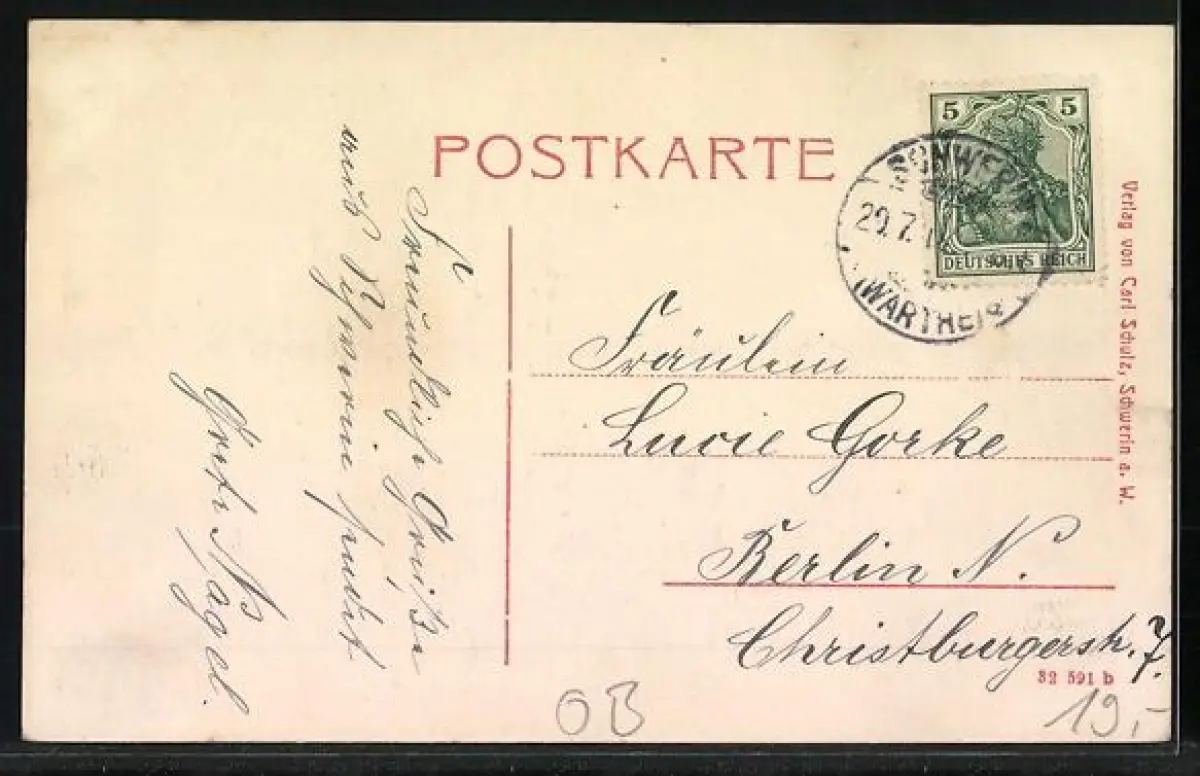 POSTKARTE
5 5
DEUTSCHES REICH
SCHWERIN
29.7.
(WARTHE)
Freundliche Grüße
aus Schwerin sendet
Grete Nagel.
Fräulein
Lucie Gorke
Berlin N.
Christburgerstr. 7.
Verlag von Carl Schulz, Schwerin a. W.
32 591 b
OB
19,-